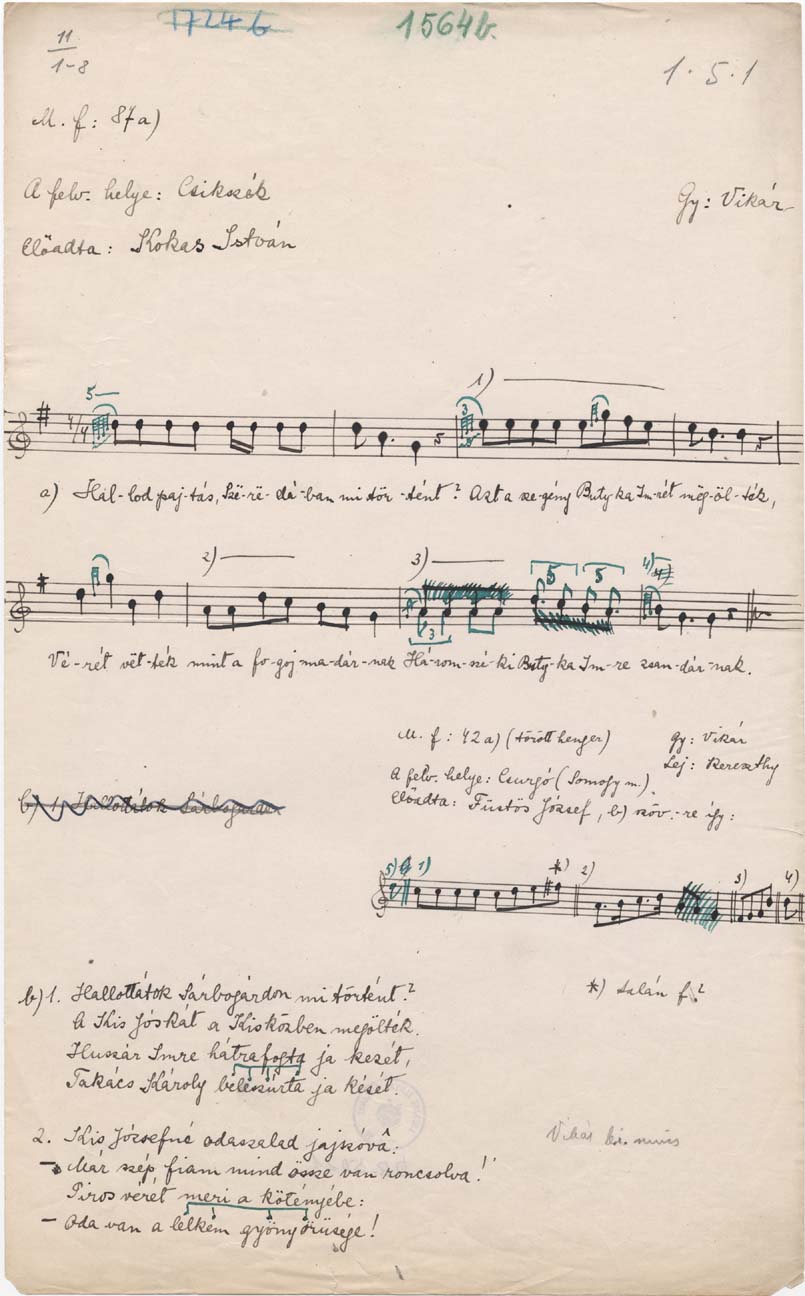 1724 b
1564 b.
11
1-8
1.5.1
M. f: 87a)
A felv. helye: Csikszék
Gy: Vikár
Előadta: Kokas István
5
1)
3
4/4
a) Hál-lod paj-tás, Szë-rë-dá-ban mi tör-tént? Azt a sze-gény Buty-ka Im-rét mëg-öl-ték,
2)
3)
5
5
4)
3
Vé-rét vët-ték mint a fo-goj ma-dár-nak Há-rom-szé-ki Buty-ka Im-re zsan-dár-nak.
M. f: 42a) (törött henger)
gy: Vikár
Lej: Kereszthy
A felv. helye: Csurgó (Somogy m.)
Előadta: Füstös József, b) szöv.-re így:
b) 1. Hallottátok Sárbogárdon
5) 1) *) 2) 3) 4)
*) talán f?
b) 1. Hallottátok Sárbogárdon mi történt?
A Kis Jóskát a Kisközben megölték.
Huszár Imre hátrafogta ja kezét,
Takács Károly beleszúrta ja kését.
2. Kis Józsefné odaszalad jajszóvâ:
- Már szép fiam mind össze van roncsolva!
Piros vérét meri a kötényébe:
- Oda van a lelkëm gyönyörüsége!
Vikár
nincs